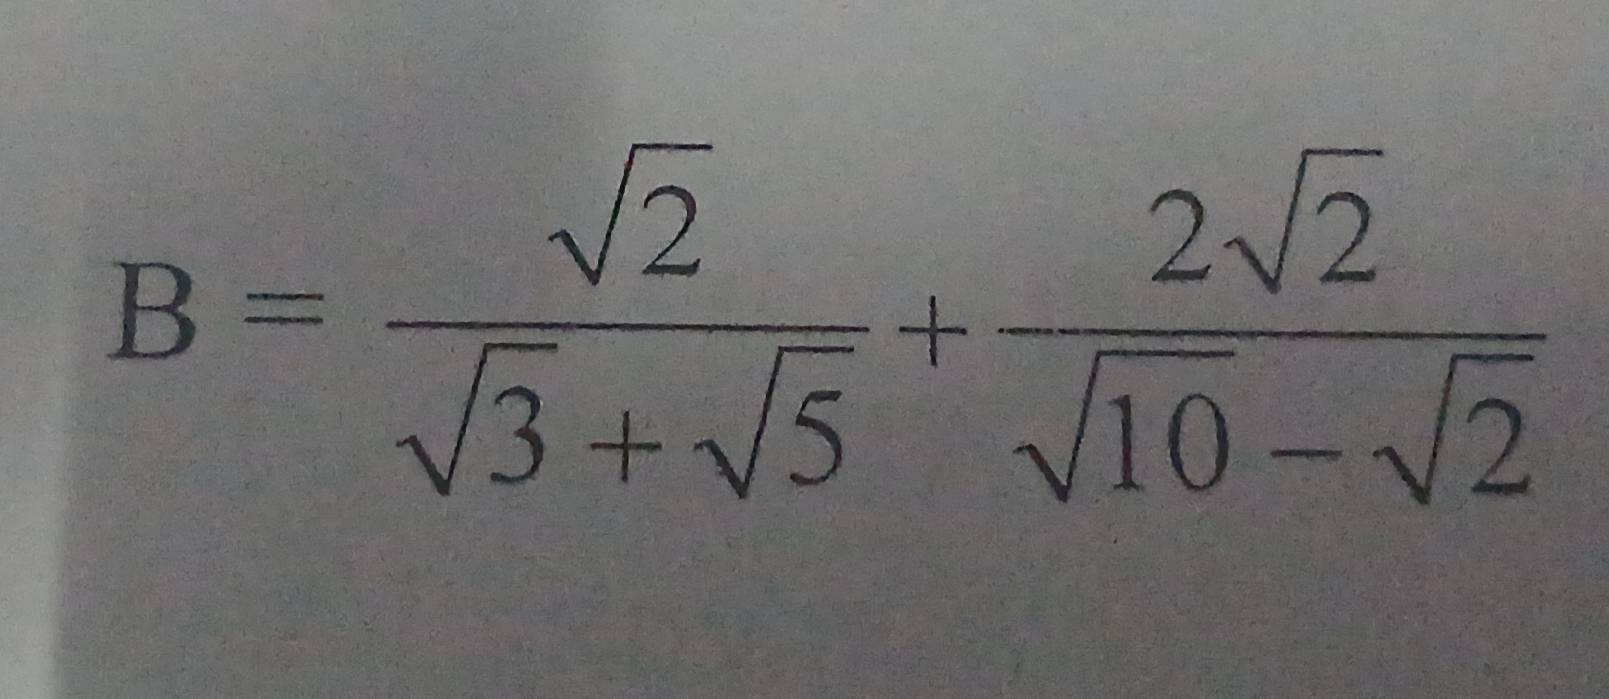 B = \frac{\sqrt{2}}{\sqrt{3} + \sqrt{5}} + \frac{2\sqrt{2}}{\sqrt{10} - \sqrt{2}}